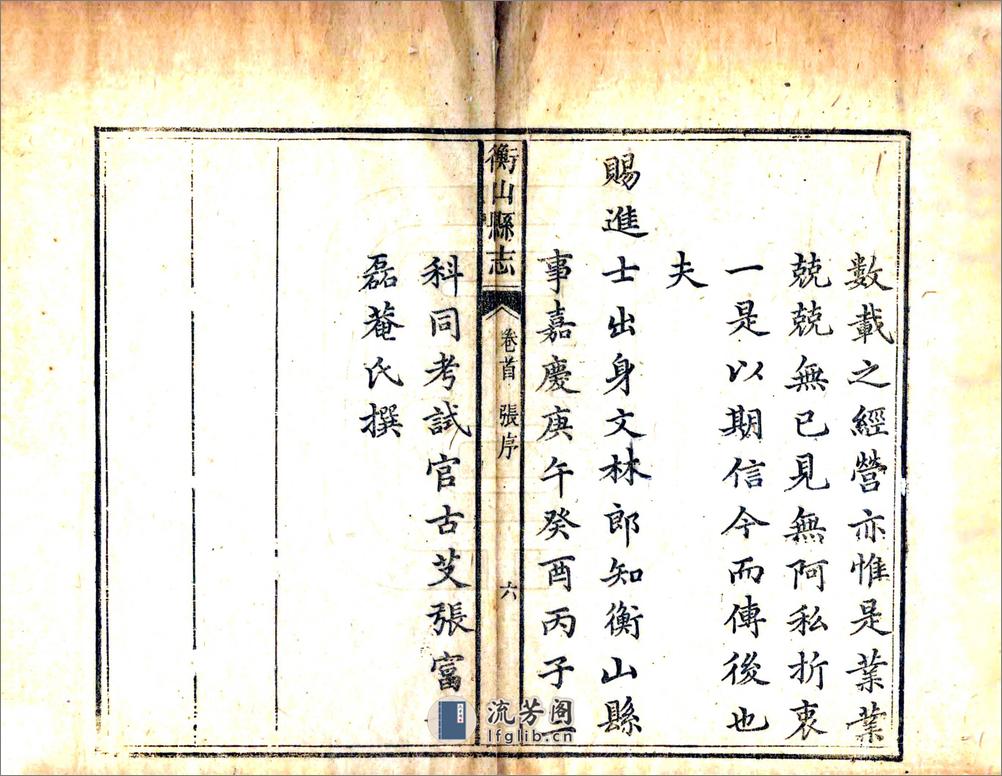 數載之經營亦惟是業業
兢兢無已見無阿私折衷
一是以期信今而傳後也
夫
賜進士出身文林郎知衡山縣
事嘉慶庚午癸酉丙子
衡山縣志 卷首 張序 六
科同考試官古艾張富
磊菴氏撰
流芳阁
lfglib.cn